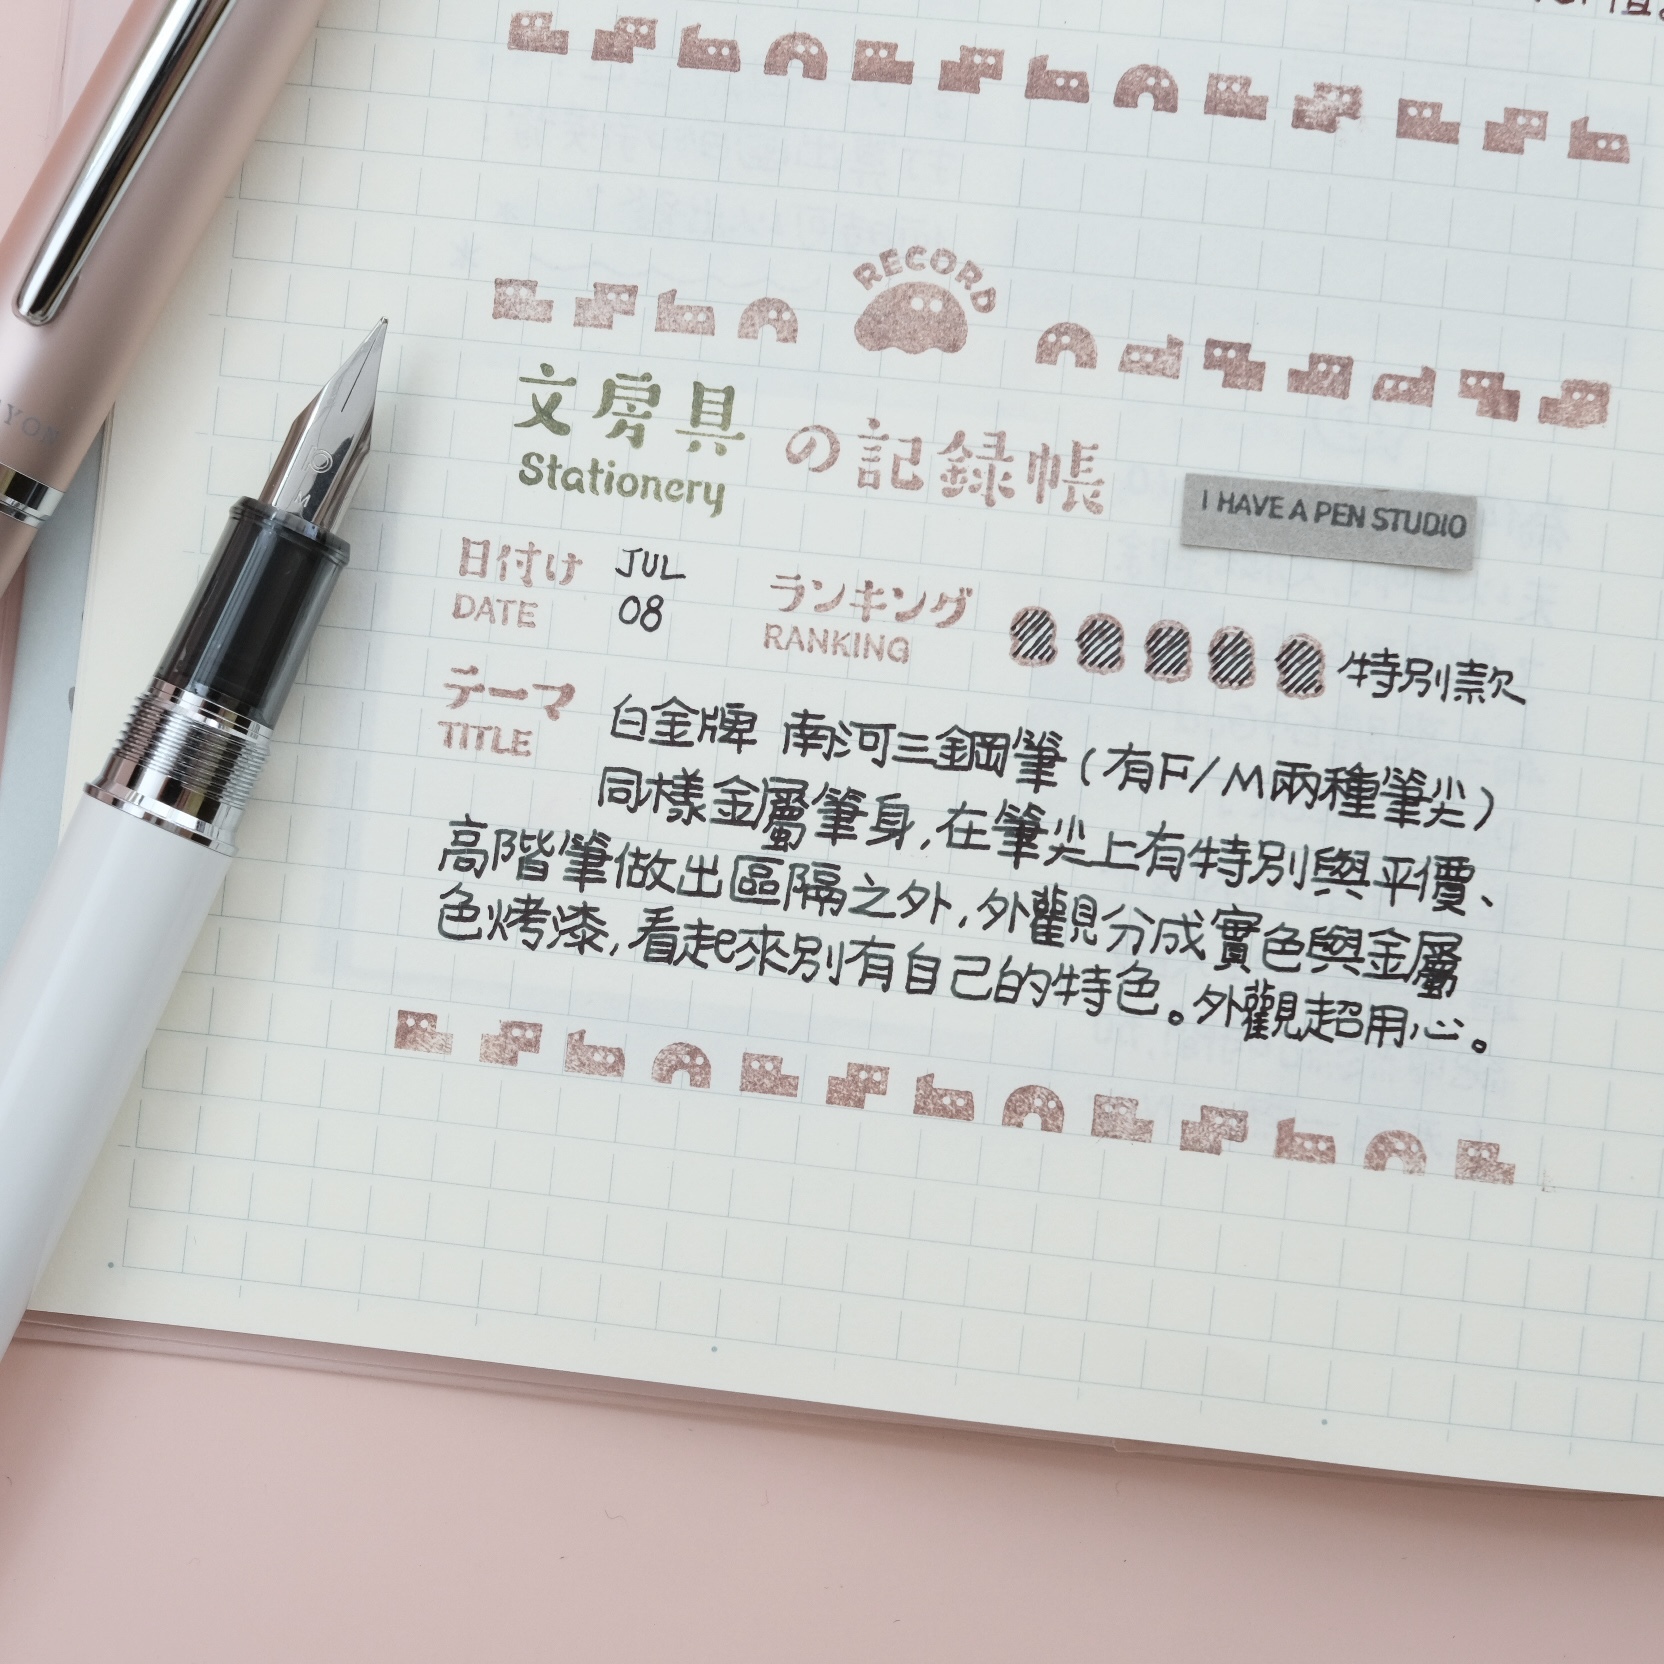 RECORD
文房具の記録帳
Stationery
I HAVE A PEN STUDIO
日付け JUL
DATE 08
ランキング 特別款
RANKING
テーマ
TITLE
白金牌 南河三鋼筆(有F/M兩種筆尖)
同樣金屬筆身,在筆尖上有特別與平價、
高階筆做出區隔之外,外觀分成實色與金屬
色烤漆,看起來別有自己的特色。外觀超用心。
M